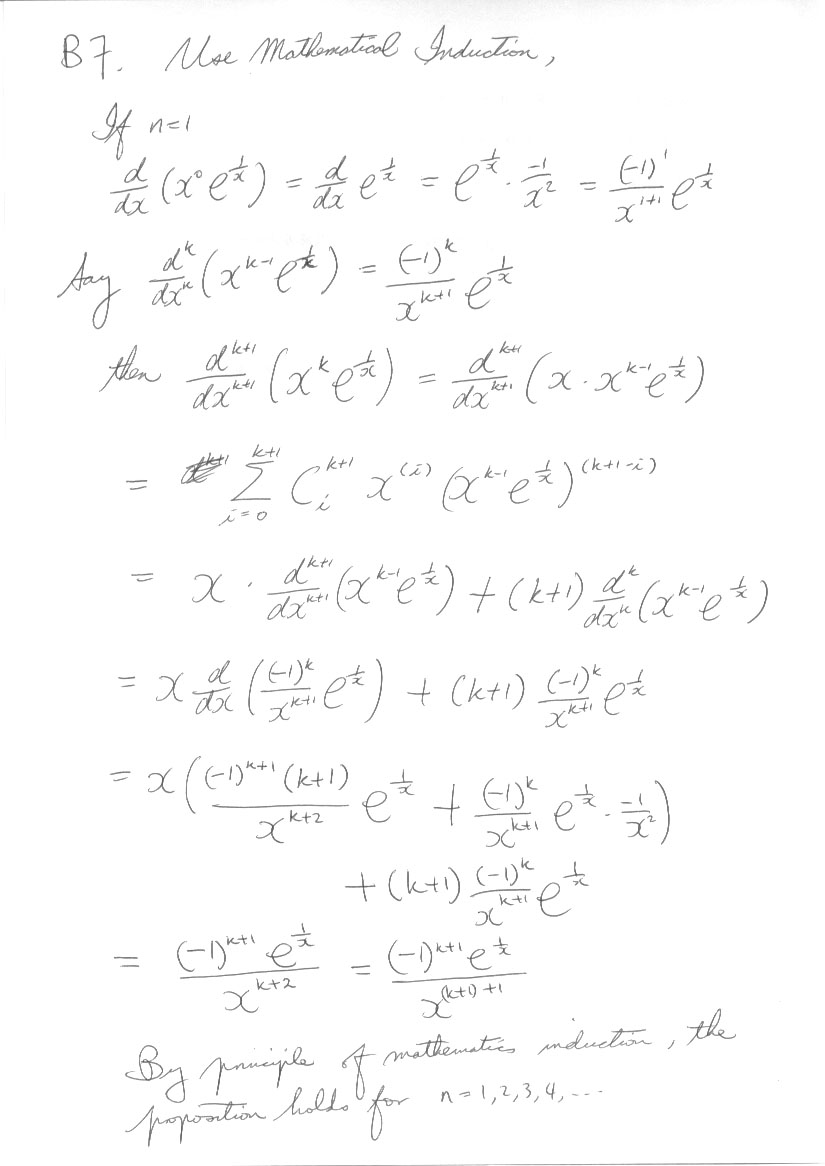 B7. Use Mathematical Induction,
If n=1
d/dx (x⁰ e^(1/x)) = d/dx e^(1/x) = e^(1/x) · -1/x² = (-1)¹/x^(1+1) e^(1/x)
Say d^k/dx^k (x^(k-1) e^(1/x)) = (-1)^k/x^(k+1) e^(1/x)
then d^(k+1)/dx^(k+1) (x^k e^(1/x)) = d^(k+1)/dx^(k+1) (x · x^(k-1) e^(1/x))
= Σ_(i=0)^(k+1) C_i^(k+1) x^(i) (x^(k-1) e^(1/x))^(k+1-i)
= x · d^(k+1)/dx^(k+1) (x^(k-1) e^(1/x)) + (k+1) d^k/dx^k (x^(k-1) e^(1/x))
= x d/dx ((-1)^k/x^(k+1) e^(1/x)) + (k+1) (-1)^k/x^(k+1) e^(1/x)
= x ((-1)^(k+1) (k+1)/x^(k+2) e^(1/x) + (-1)^k/x^(k+1) e^(1/x) · -1/x²)
+ (k+1) (-1)^k/x^(k+1) e^(1/x)
= (-1)^(k+1) e^(1/x)/x^(k+2) = (-1)^(k+1) e^(1/x)/x^((k+1)+1)
By principle of mathematics induction, the
proposition holds for n=1,2,3,4,....